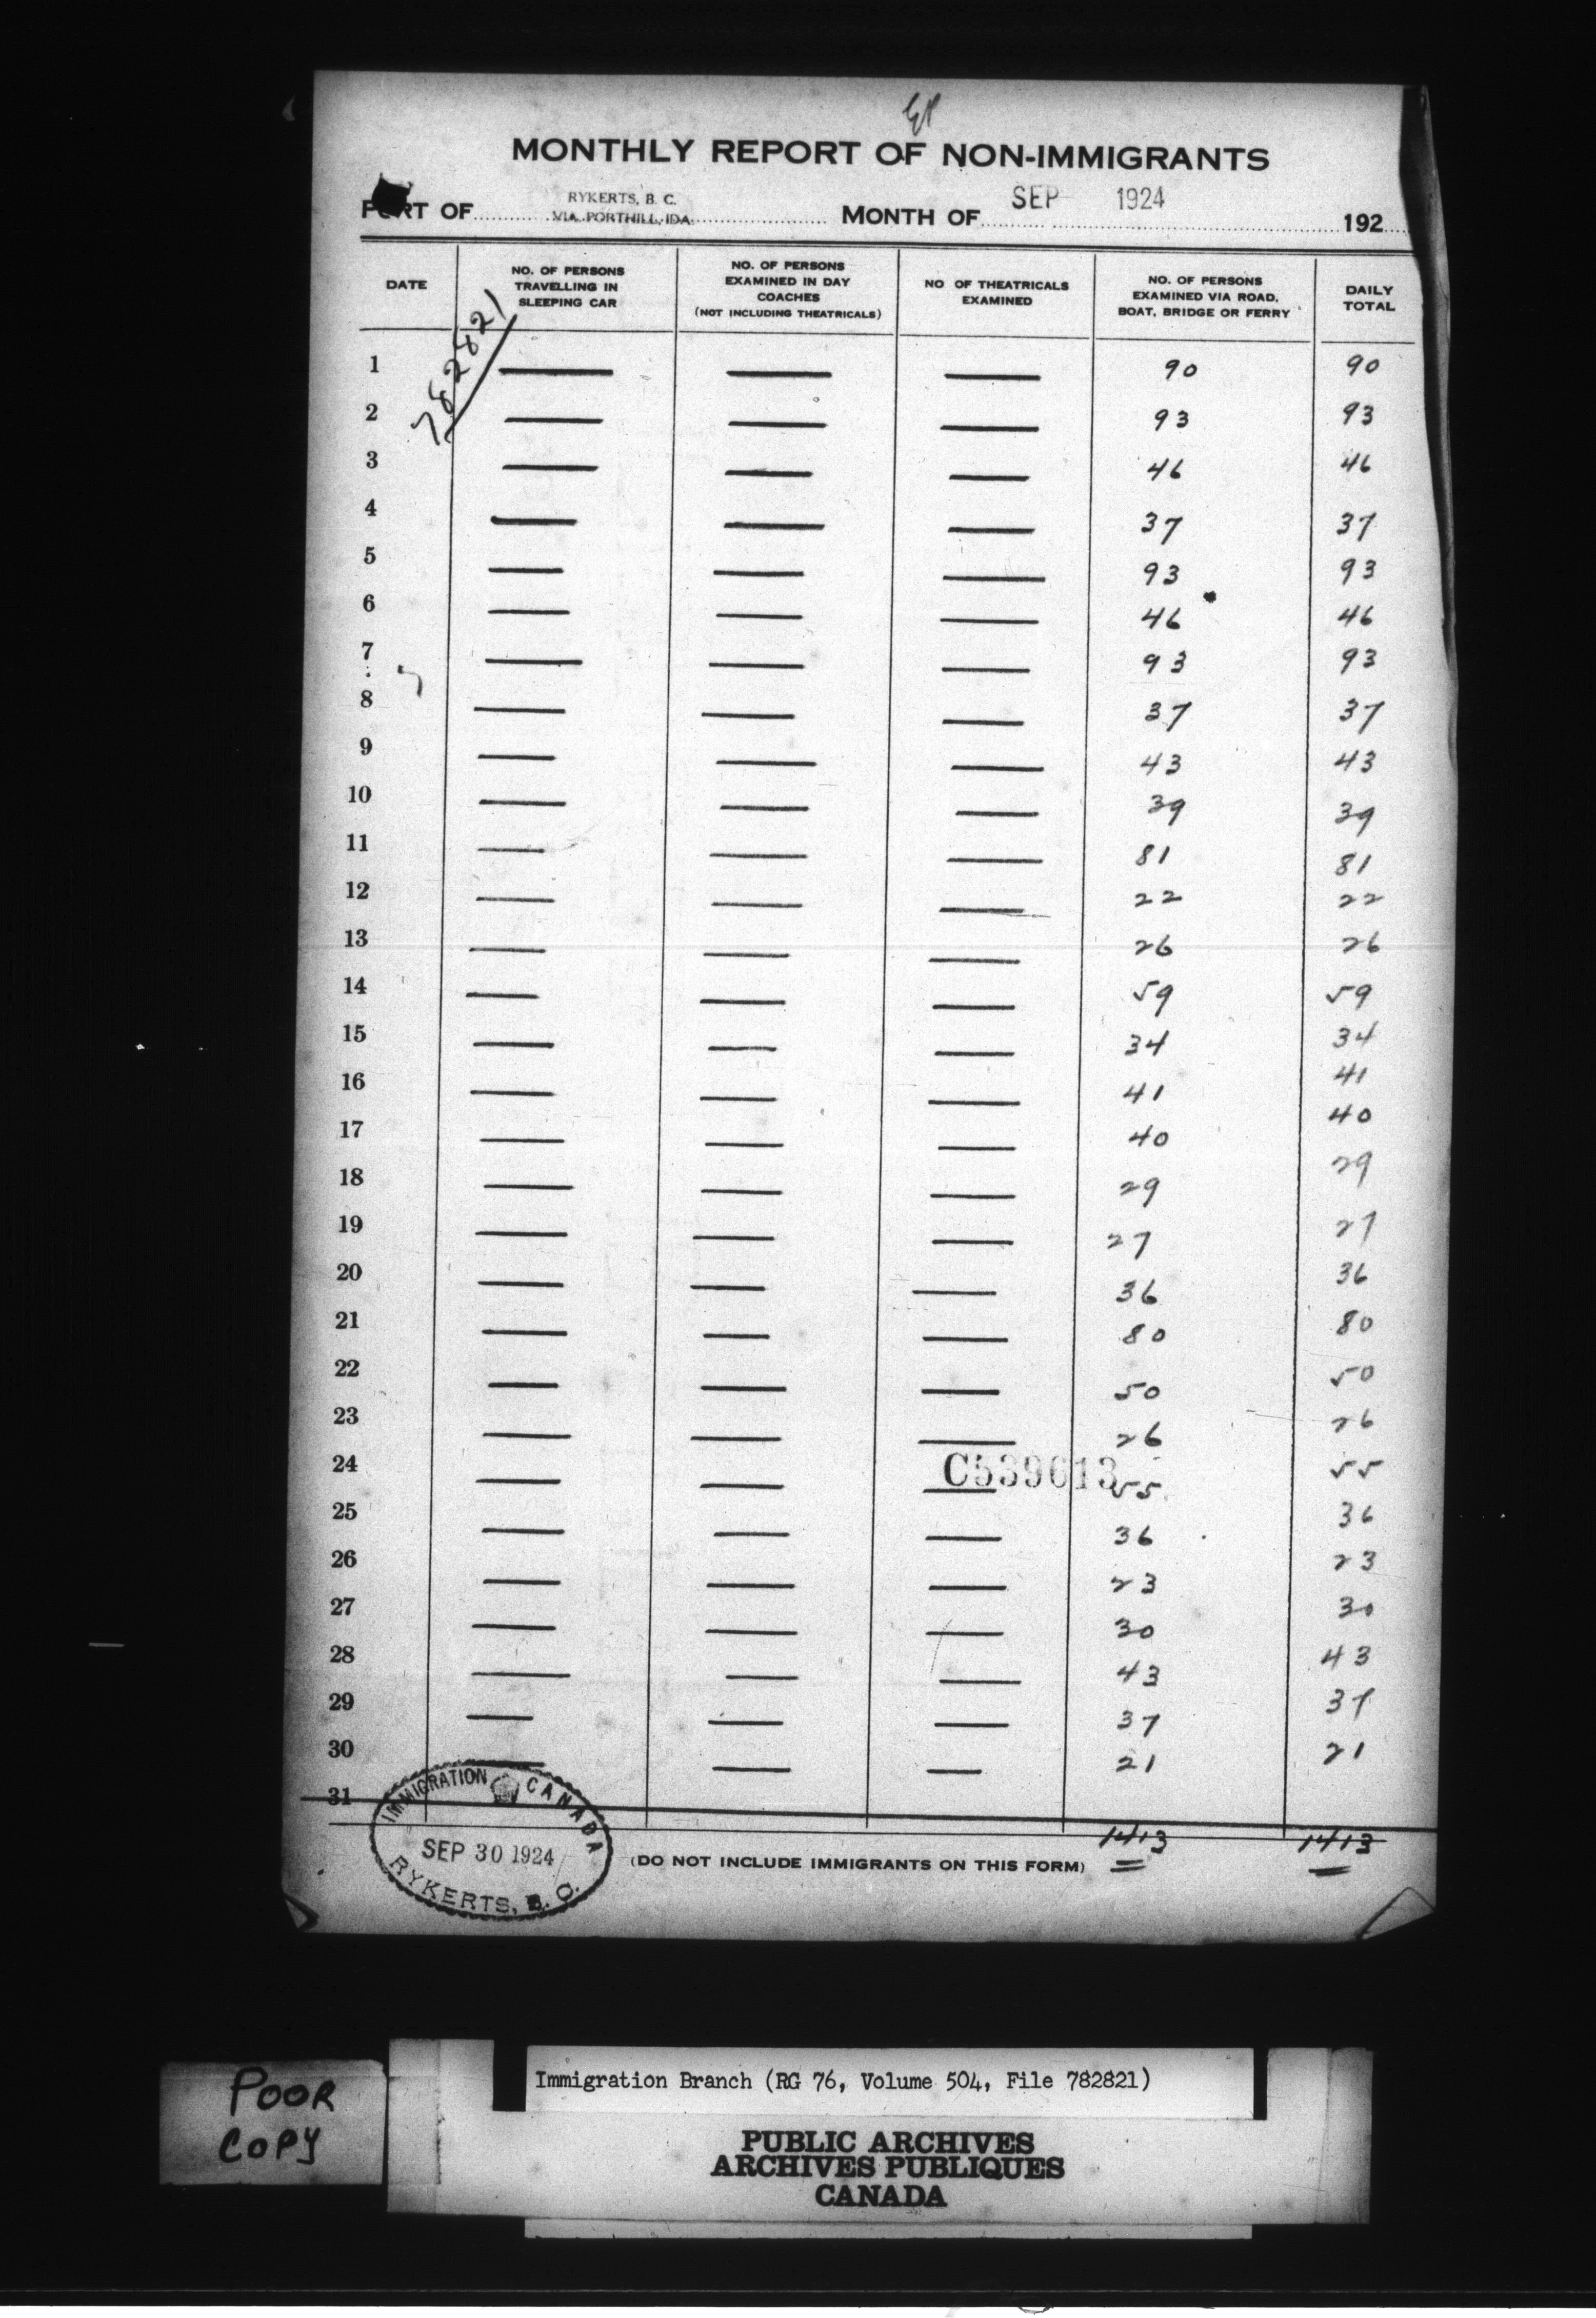 MONTHLY REPORT OF NON-IMMIGRANTS
PORT OF RYKERTS, B. C. VIA PORTHILL, IDA. MONTH OF SEP 1924 192
DATE NO. OF PERSONS TRAVELLING IN SLEEPING CAR NO. OF PERSONS EXAMINED IN DAY COACHES (NOT INCLUDING THEATRICALS) NO OF THEATRICALS EXAMINED NO. OF PERSONS EXAMINED VIA ROAD, BOAT, BRIDGE OR FERRY DAILY TOTAL
782821
1 — — — 90 90
2 — — — 93 93
3 — — — 46 46
4 — — — 37 37
5 — — — 93 93
6 — — — 46 46
7 — — — 93 93
8 — — — 37 37
9 — — — 43 43
10 — — — 39 39
11 — — — 81 81
12 — — — 22 22
13 — — — 26 26
14 — — — 59 59
15 — — — 34 34
16 — — — 41 41
17 — — — 40 40
18 — — — 29 29
19 — — — 27 27
20 — — — 36 36
21 — — — 80 80
22 — — — 50 50
23 — — — 26 26
C539613
24 — — — 55 55
25 — — — 36 36
26 — — — 23 23
27 — — — 30 30
28 — — — 43 43
29 — — — 37 37
30 — — — 21 21
31
1413 1413
(DO NOT INCLUDE IMMIGRANTS ON THIS FORM)
IMMIGRATION CANADA
SEP 30 1924
RYKERTS, B. C.
POOR
COPY
Immigration Branch (RG 76, Volume 504, File 782821)
PUBLIC ARCHIVES
ARCHIVES PUBLIQUES
CANADA